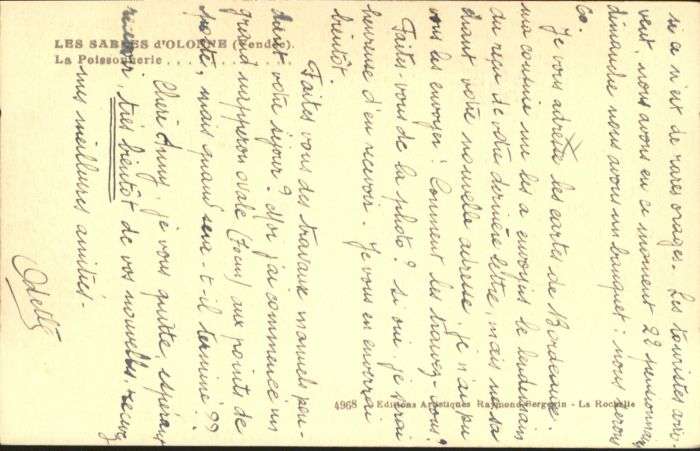 LES SABLES d'OLONNE (Vendée).
La Poissonnerie . . . . . . . . . . . . . .
4968 - Editions Artistiques Raymond Bergevin - La Rochelle
si ce n'est de rares orages. Les touristes arri-
vent, nous avons en ce moment 22 pensionnaires
dimanche nous avons un banquet : nous serons
60.
Je vous adresse les cartes de Bordeaux.
ma cousine me les a envoyées le lendemain
du reçu de votre dernière lettre, mais ne sa
chant votre nouvelle adresse, je n'ai pu
vous les envoyer ! Comment les trouvez-vous ?
Faites-vous de la photo ? si oui, je serai
heureuse d'en recevoir. Je vous en enverrai
bientôt.
Faites vous des travaux manuels pen-
dant votre séjour ? Moi j'ai commencé un
grand napperon ovale aux points de
mais quand sera-t-il terminé ??
Chère Anny, je vous quitte, espérant
recevoir, très bientôt de vos nouvelles, recevez
mes meilleures amitiés -
Odette